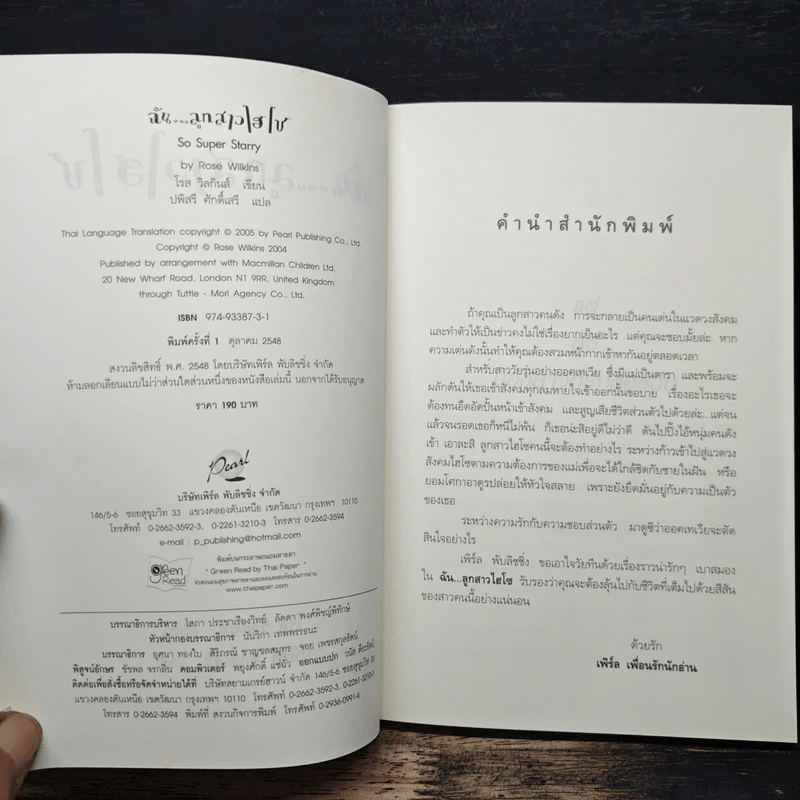 ฉัน...ลูกสาวไฮโซ
So Super Starry
by Rose Wilkins
โรส วิลกินส์ เขียน
ปพิสรี ศักดิ์เสรี แปล
Thai Language Translation copyright © 2005 by Pearl Publishing Co., Ltd.
Copyright © Rose Wilkins 2004
Published by arrangement with Macmillan Children Ltd.
20 New Wharf Road, London N1 9RR, United Kingdom
through Tuttle - Mori Agency Co., Ltd.
ISBN 974-93387-3-1
พิมพ์ครั้งที่ 1 ตุลาคม 2548
สงวนลิขสิทธิ์ พ.ศ. 2548 โดยบริษัทเพิร์ล พับลิชชิ่ง จำกัด
ห้ามลอกเลียนแบบไม่ว่าส่วนใดส่วนหนึ่งของหนังสือเล่มนี้ นอกจากได้รับอนุญาต
ราคา 190 บาท
Pearl
บริษัทเพิร์ล พับลิชชิ่ง จำกัด
146/5-6 ซอยสุขุมวิท 33 แขวงคลองตันเหนือ เขตวัฒนา กรุงเทพฯ 10110
โทรศัพท์ 0-2662-3592-3, 0-2261-3210-3 โทรสาร 0-2662-3594
e-mail : p_publishing@hotmail.com
Green Read
พิมพ์บนกระดาษถนอมสายตา
" Green Read by Thai Paper "
ช่วยถนอมสุขภาพสายตาและผ่อนคลายสมองในการอ่าน
www.thaipaper.com
บรรณาธิการบริหาร โสภา ประชาเรืองวิทย์ ลัดดา พงศ์พิชญ์พิทักษ์
หัวหน้ากองบรรณาธิการ นันวิกา เทพพรรธนะ
บรรณาธิการ อุศนา ทองใบ สิริภรณ์ ชาญชลสมุทร จอย เพชรสกุลรัตน์
พิสูจน์อักษร ชัชพล จรกลิ่น คอมพิวเตอร์ พยุงศักดิ์ แซ่ฉั่ว ออกแบบปก วนัส ศิระรัตน์
ติดต่อเพื่อสั่งซื้อหรือจัดจำหน่ายได้ที่ บริษัทสยามเกรย์ฮาวน์ จำกัด 146/5-6 ซอยสุขุมวิท 33
แขวงคลองตันเหนือ เขตวัฒนา กรุงเทพฯ 10110 โทรศัพท์ 0-2662-3592-3, 0-2261-3210-3
โทรสาร 0-2662-3594 พิมพ์ที่ สงวนกิจการพิมพ์ โทรศัพท์ 0-2936-0991-6
คำนำสำนักพิมพ์
ถ้าคุณเป็นลูกสาวคนดัง การจะกลายเป็นคนเด่นในแวดวงสังคม
และทำตัวให้เป็นข่าวคงไม่ใช่เรื่องยากเย็นอะไร แต่คุณจะชอบมั้ยล่ะ หาก
ความเด่นดังนั้นทำให้คุณต้องสวมหน้ากากเข้าหากันอยู่ตลอดเวลา
สำหรับสาววัยรุ่นอย่างออคเทเวีย ซึ่งมีแม่เป็นดารา และพร้อมจะ
ผลักดันให้เธอเข้าสังคมทุกลมหายใจเข้าออกนั้นขอบาย เรื่องอะไรเธอจะ
ต้องทนอึดอัดปั้นหน้าเข้าสังคม และสูญเสียชีวิตส่วนตัวไปด้วยล่ะ...แต่จน
แล้วจนรอดเธอก็หนีไม่พ้น ก็เธอน่ะสิอยู่ดีไม่ว่าดี ดันไปปิ๊งไอ้หนุ่มคนดัง
เข้า เอาละสิ ลูกสาวไฮโซคนนี้จะต้องทำอย่างไร ระหว่างก้าวเข้าไปสู่แวดวง
สังคมไฮโซตามความต้องการของแม่เพื่อจะได้ใกล้ชิดกับชายในฝัน หรือ
ยอมโศกาอาดูรปล่อยให้หัวใจสลาย เพราะยังยึดมั่นอยู่กับความเป็นตัว
ของเธอ
ระหว่างความรักกับความชอบส่วนตัว มาดูซิว่าออคเทเวียจะตัด
สินใจอย่างไร
เพิร์ล พับลิชชิ่ง ขอเอาใจวัยทีนด้วยเรื่องราวน่ารักๆ เบาสมอง
ใน ฉัน...ลูกสาวไฮโซ รับรองว่าคุณจะต้องลุ้นไปกับชีวิตที่เต็มไปด้วยสีสัน
ของสาวคนนี้อย่างแน่นอน
ด้วยรัก
เพิร์ล เพื่อนรักนักอ่าน